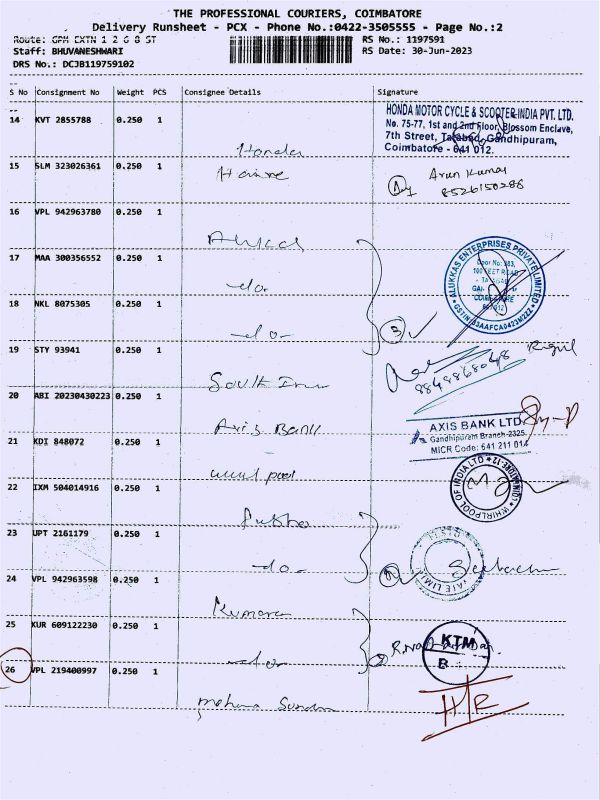 THE PROFESSIONAL COURIERS, COIMBATORE
Delivery Runsheet - PCX - Phone No.:0422-3505555 - Page No.:2
Route: GPM EXTN 1 2 G 8 ST
RS No.: 1197591
Staff: BHUVANESHWARI
RS Date: 30-Jun-2023
DRS No.: DCJB119759102
S No Consignment No Weight PCS Consignee Details Signature
14 KVT 2855788 0.250 1 Honda
HONDA MOTOR CYCLE & SCOOTER INDIA PVT. LTD.
No. 75-77, 1st and 2nd Floor, Blossom Enclave,
7th Street, Tatabad, Gandhipuram,
Coimbatore - 641 012.
15 SLM 323026361 0.250 1
Arun Kumar
8526150288
16 VPL 942963780 0.250 1
17 MAA 300356552 0.250 1 -do-
ALUKKAS ENTERPRISES PRIVATE LIMITED
GSTIN:33AAFCA0423M2ZZ
18 NKL 8075305 0.250 1 -do-
3
19 STY 93941 0.250 1 South
8848868048
20 ABI 20230430223 0.250 1 Axis Bank
AXIS BANK LTD
Gandhipuram Branch-2325
MICR Code: 641 211 014
21 KDI 848072 0.250 1
WHIRLPOOL OF INDIA LTD
22 IXM 504014916 0.250 1
23 UPT 2161179 0.250 1 -do-
24 VPL 942963598 0.250 1 Kumaran
25 KUR 609122230 0.250 1 -do-
KTM
B
26 VPL 219400997 0.250 1